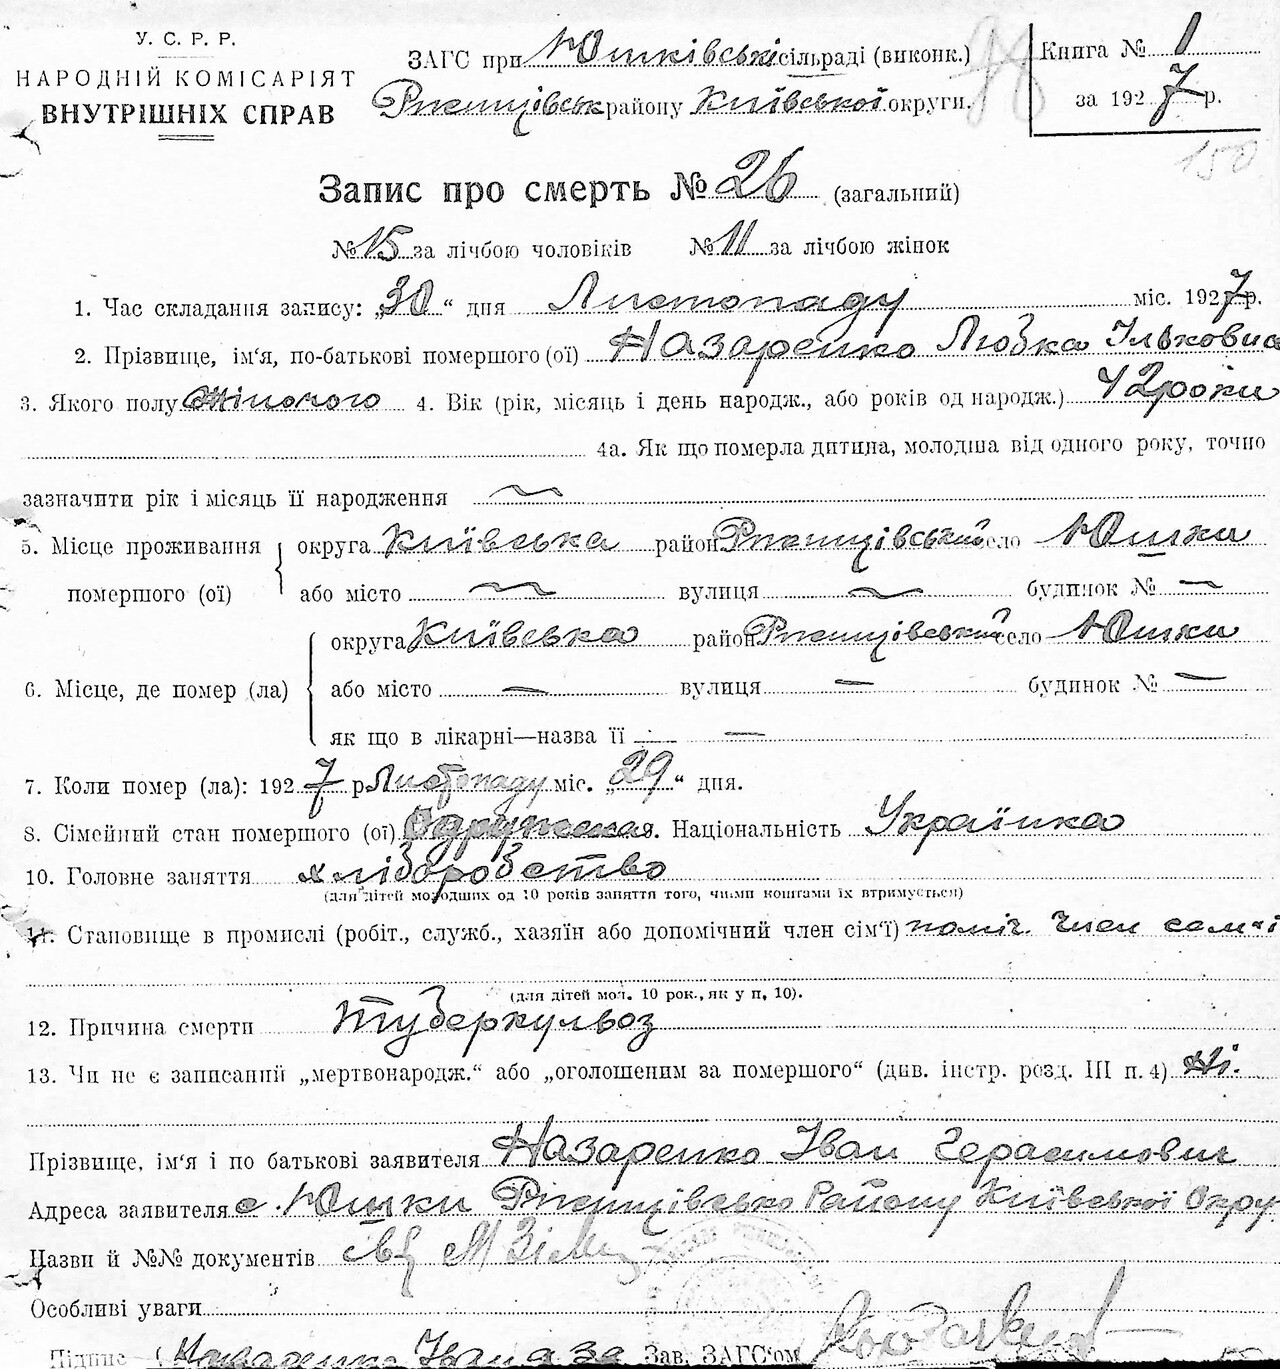 У. С. Р. Р.
НАРОДНІЙ КОМІСАРІЯТ
ВНУТРІШНІХ СПРАВ
ЗАГС при Юшківські сільраді (виконк.)
Ржищівськ району Київської округи.
Книга № 1
за 1927 р.
150
Запис про смерть № 26 (загальний)
№ 15 за лічбою чоловіків № 11 за лічбою жінок
1. Час складання запису: „30“ дня Листопаду міс. 1927 р.
2. Прізвище, ім‘я, по-батькові помершого (ої) Назаренко Любка Ільковна
3. Якого полу жіночого 4. Вік (рік, місяць і день народж., або років од народж.) 42 роки
4а. Як що померла дитина, молодша від одного року, точно
зазначити рік і місяць її народження
5. Місце проживання помершого (ої) округа Київська район Ржищівський село Юшки
або місто — вулиця — будинок № —
6. Місце, де помер (ла) округа Київська район Ржищівський село Юшки
або місто — вулиця — будинок № —
як що в лікарні—назва її —
7. Коли помер (ла): 1927 р. Листопаду міс. „29“ дня.
8. Сімейний стан помершого (ої) Одружена. Національність Українка
10. Головне заняття хліборобство
(для дітей молодших од 10 років заняття того, чиїми коштами їх втримується)
11. Становище в промислі (робіт., служб., хазяїн або допомічний член сім‘ї) поміч. член семʼї
(для дітей мол. 10 рок., як у п, 10).
12. Причина смерти туберкульоз
13. Чи не є записаний „мертвонародж.“ або „оголошеним за помершого“ (див. інстр. розд. III п. 4) Ні.
Прізвище, ім‘я і по батькові заявителя Назаренко Іван Герасимович
Адреса заявителя с. Юшки Ржищівсько Району Київської Окру
Назви й №№ документів
Особливі уваги
Підпис (Назаренко Іван а за Зав. ЗАГС'ом